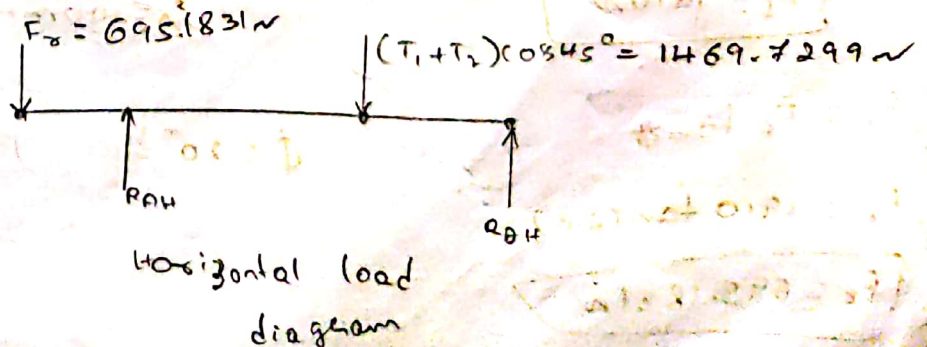 Fr = 695.1831 N
(T₁+T₂)cos45° = 1469.7299 N
RAH
RBH
Horizontal load
diagram